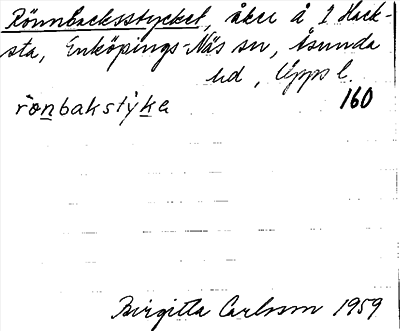 Rönnbacksstycket, åker å 2 Hack-
sta, Enköpings-Näs sn, Åsunda
hd, Upps l.
rönbakstyka 160
Birgitta Carlsson 1959